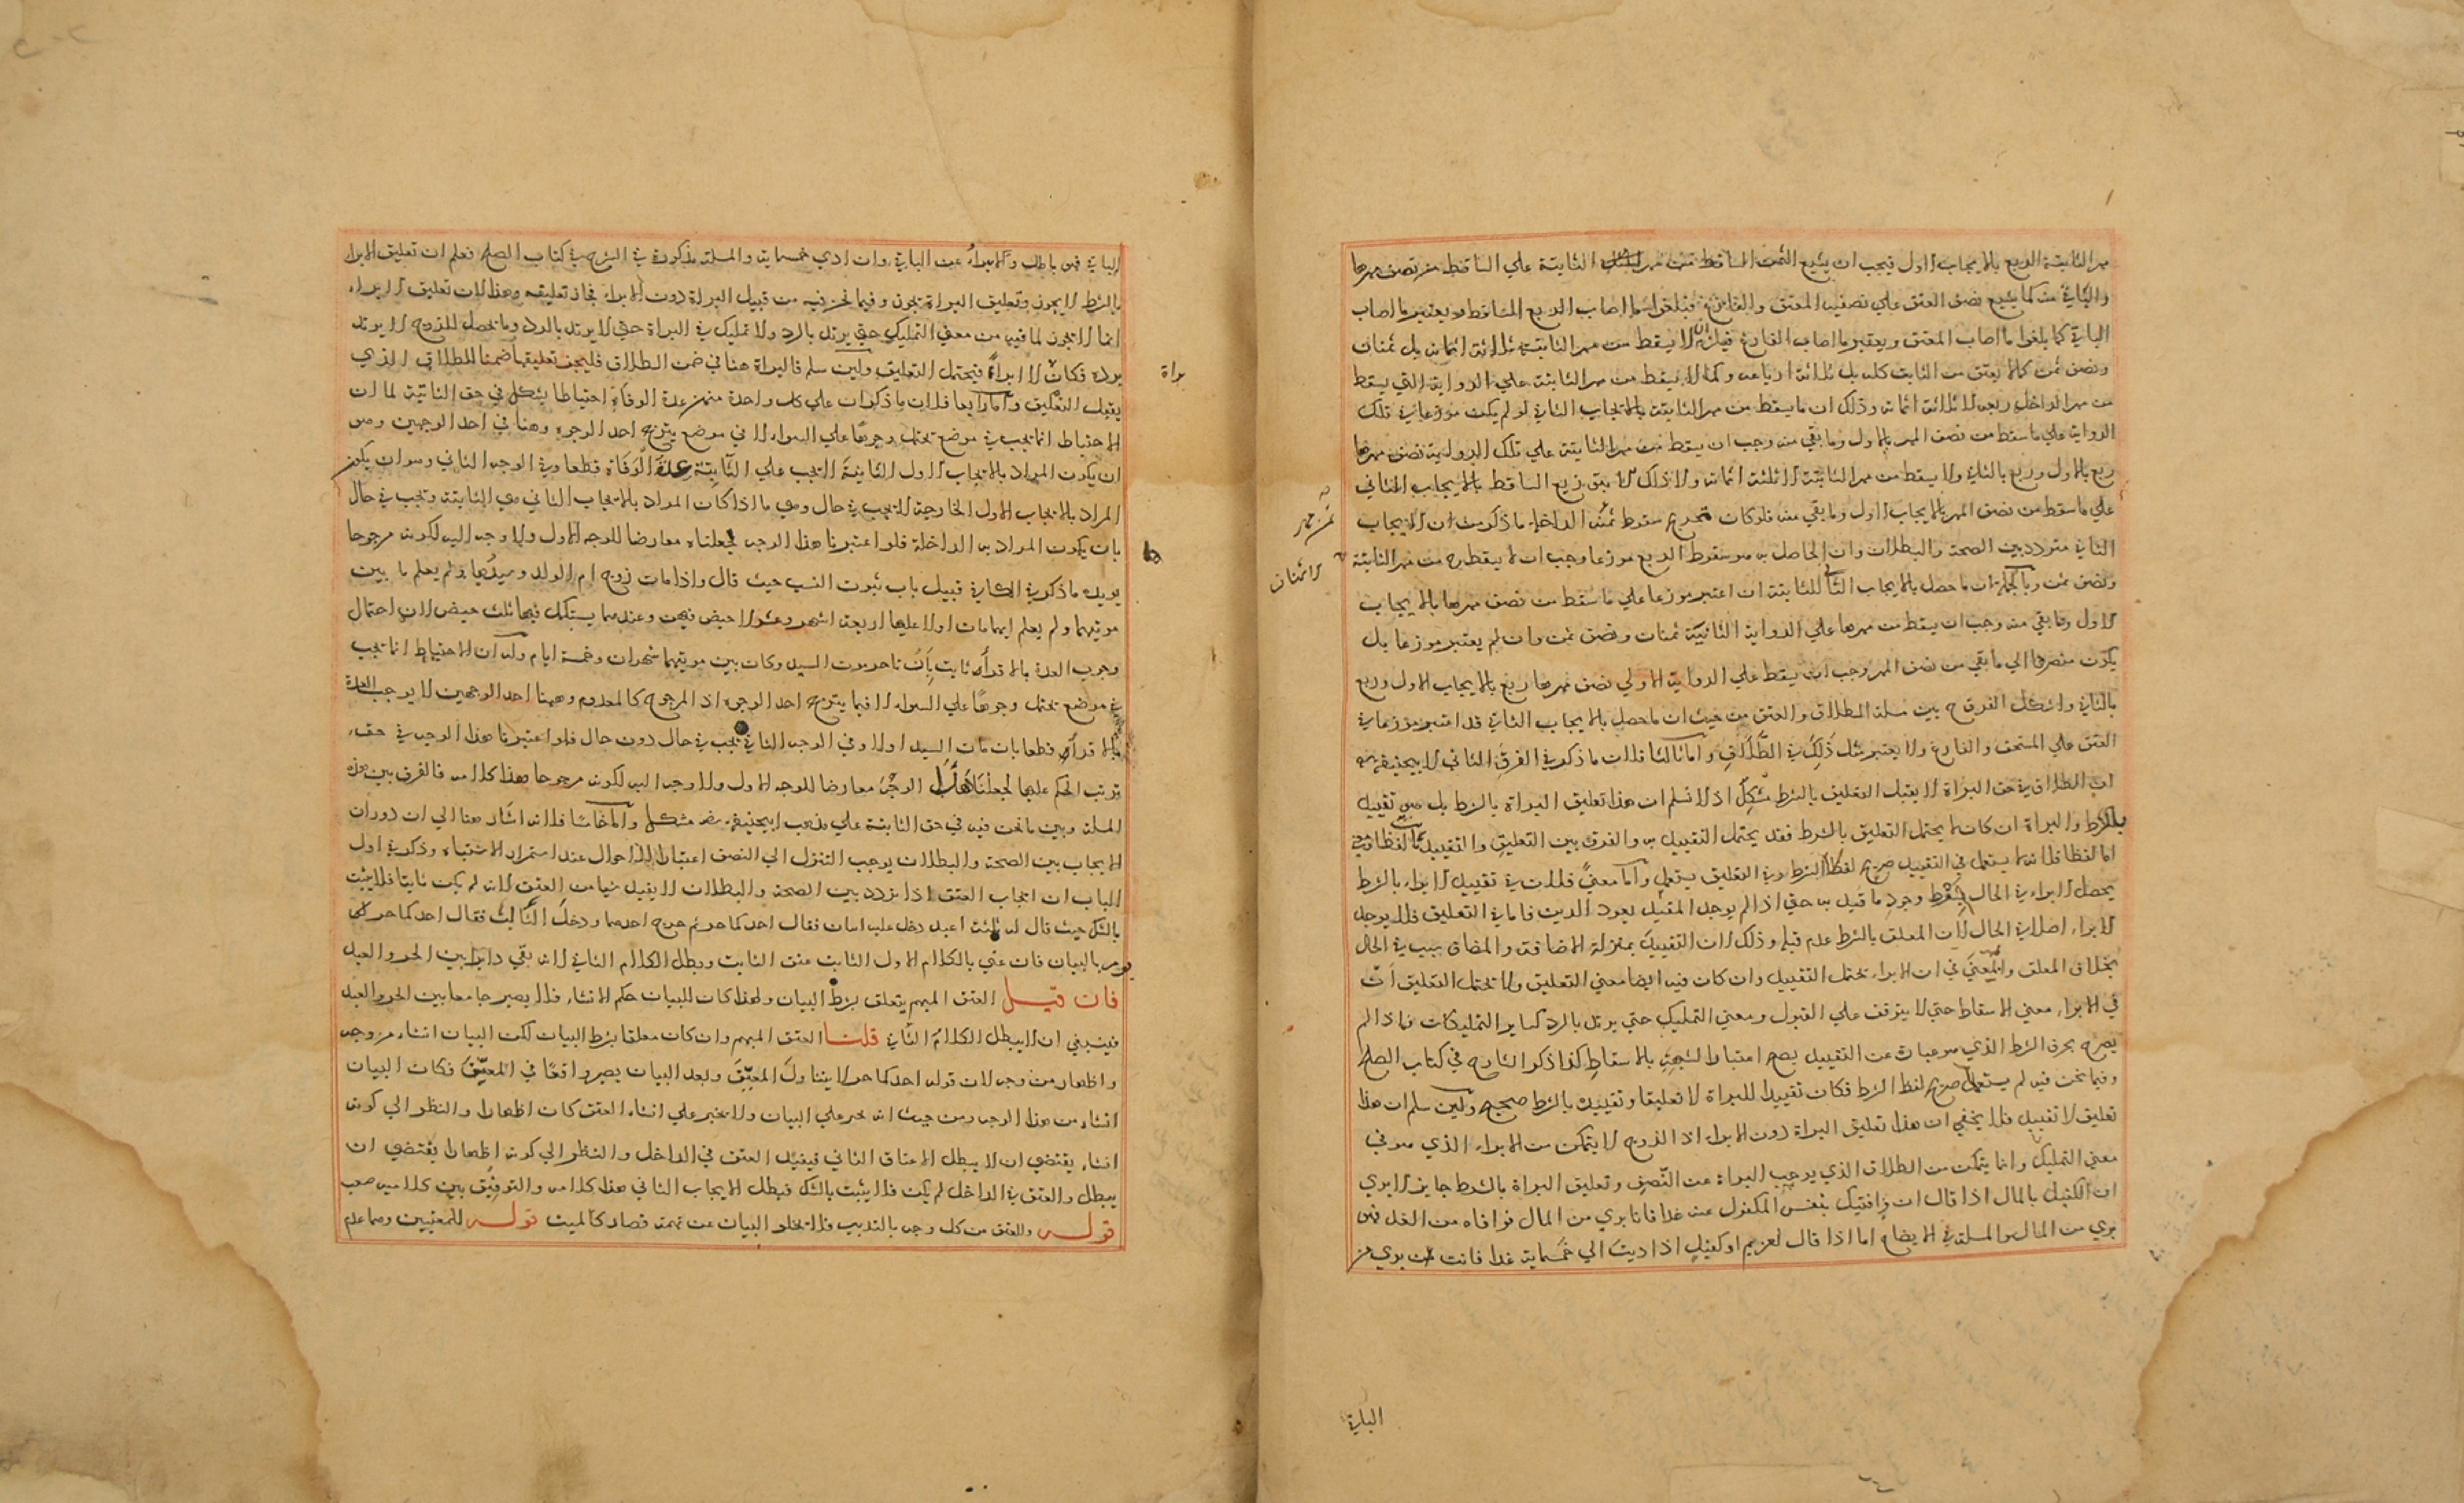 مهر الثابتة الربع بالايجاب الاول فيجب ان يشيع الثمن الساقط من مهر الثابتة علي الساقط من نصف مهرها
والباقي منه كما يشيع نصف العتق علي نصفيه المعتق والفارغ فيلغو ما اصاب الربع الساقط ويعتبر ما اصاب
الباقي كما يلغوا ما اصاب المعتق ويعتبر ما اصاب الفارغ فيلزم ان لا يسقط من مهر الثابتة ثلاثة اثمانه بل ثمنان
ونصف ثمن كما لا يعتق من الثابت كله بل ثلاثة ارباعه وكما لا يسقط من مهر الثابتة علي الرواية التي يسقط
من مهر الداخلة ربعه الا ثلاثة اثمانه وذلك ان ما يسقط من مهر الثابتة بالايجاب الثاني لو لم يكن موزعا في تلك
الرواية علي ما سقط من نصف المهر بالاول وما بقي منه وجب ان يسقط من مهر الثابتة علي تلك الرواية نصف مهرها
ربع بالاول وربع بالثاني ولا يسقط من مهر الثابتة الا ثلثة اثمانه ولا ذلك الا بتوزيع الساقط بالايجاب الثاني
علي ما سقط من نصف المهر بالايجاب الاول وما بقي منه فلو كان مخرج سقوط ثمن الداخلة ما ذكر من ان الايجاب
الثاني متردد بين الصحة والبطلان وان الحاصل به هو سقوط الربع موزعا وجب ان لا يسقط ح من مهر الثابتة
ونصف ثمن وبالجملة ان ما حصل بالايجاب الثاني للثابتة ان اعتبر موزعا علي ما سقط من نصف مهرها بالايجاب
الاول وما بقي منه وجب ان يسقط من مهرها علي الرواية الثانية ثمنان ونصف ثمن وان لم يعتبر موزعا بل
يكون منصرفا الي ما بقي من نصف المهر وجب ان يسقط علي الرواية الاولي نصف مهرها ربع بالايجاب الاول وربع
بالثاني واشكل الفرق ح بين مسلة الطلاق والعتق من حيث ان ما حصل بالايجاب الثاني قد اعتبر موزعا في
العتق علي المستحق والفارغ ولا يعتبر مثل ذلك في الطلاق واما ثالثا فلان ما ذكر في الفرق الثاني لابيحنيفة رضه
ان الطلاق في حق البراة لا يقبل التعليق بالشرط مشكل اذ لا نسلم ان هذا تعليق البراة بالشرط بل هو تقييد
بالشرط والبراة ان كان لا يحتمل التعليق بالشرط فقد يحتمل التقييد به والفرق بين التعليق والتقييد ثابت لفظا ومعني
اما لفظا فلانه لا يستعمل في التقييد صريح لفظ الشرط وفي التعليق يستعمل واما معني فلان في تقييد الابراء بالشرط
يحصل الابراء في الحال بشرط وجود ما قيد به حتي اذا لم يوجد المقيد يعود الدين فاما في التعليق فلا يوجد
الابراء اصلا في الحال لان المعلق بالشرط عدم قبله وذلك لان التقييد بمنزلة الاضافة والمضاف سبب في الحال
بخلاف المعلق والمعني في ان الابراء يحتمل التقييد وان كان فيه ايضا معني التعليق ولا يحتمل التعليق ان
في الابراء معني الاسقاط حتي لا يتوقف علي القبول ومعني التمليك حتي يرتد بالرد كساير التمليكات فاذا لم
يصرح بحرف الشرط الذي هو عبارة عن التقييد يصح اعتبارا لشبهه بالاسقاط كذا ذكر الشارح في كتاب الصلح
وفيما نحن فيه لم يستعمل صريح لفظ الشرط فكان تقييدا للبراة لا تعليقا وتقييده بالشرط صحيح ولين سلم ان هذا
تعليق لا تقييد فلا يخفي ان هذا تعليق البراة دون الابراء اذ الزوج لا يتمكن من الابراء الذي هو في
معني التمليك وانما يتمكن من الطلاق الذي يوجب البراة عن النصف وتعليق البراة بالشرط جايز الا يري
ان الكفيل بالمال اذا قال ان وافيتك بنفس المكفول عنه غدا فانا بري من المال فوافاه من الغد فهو
بري من المال والمسلة في الايضاح اما اذا قال لغريم او كفيل اذا اديت الي خمسماية غدا فانت بري من
الباقي
ثمنان
الباقي فهو باطل ولا ابراء عن الباقي وان ادي خمسماية والمسلة مذكورة في الشرح في كتاب الصلح فعلم ان تعليق الابراء
بالشرط لا يجوز وتعليق البراة يجوز وفيما نحن فيه من قبيل البراة دون الابراء فجاز تعليقه وهذا لان تعليق الابراء
انما لا يجوز لما فيه من معني التمليك حتي يرتد بالرد ولا تمليك في البراة حتي لا يرتد بالرد وما يحصل للزوج لا يرتد
برده فكان لا ابراء فيحتمل التعليق ولين سلم فالبراة هنا في ضمن الطلاق فليجز تعليقها ضمنا للطلاق الذي
يقبل التعليق واما رابعا فلان ما ذكر ان علي كل واحدة منهن عدة الوفاة احتياطا يشكل في حق الثابتة لما ان
الاحتياط انما يجب في موضع يحتمل وجوها علي السواء لا في موضع يترجح احد الوجوه وهنا في احد الوجهين وهو
ان يكون المراد بالايجاب الاول الثابتة لا تجب علي الثابتة عدة الوفاة قطعا وفي الوجه الثاني وهو ان يكون
المراد بالايجاب الاول الخارجة لا تجب في حال وهي ما اذا كان المراد بالايجاب الثاني هي الثابتة وتجب في حال
بان يكون المراد به الداخلة فلو اعتبرنا هذا الوجه لجعلناه معارضا للوجه الاول ولا وجه اليه لكونه مرجوحا
يويده ما ذكر في الكافي قبيل باب ثبوت النسب حيث قال واذا مات زوج ام الولد وسيدها ولم يعلم ما بين
موتيهما ولم يعلم ايهما مات اولا عليها اربعة اشهر وعشر لا حيض فيهن وعندهما يستكمل فيها ثلث حيض لان احتمال
وجوب العدة بالاقراء ثابت بان تاخر موت السيد وكان بين موتيهما شهران وخمسة ايام وله ان الاحتياط انما يجب
في موضع يحتمل وجوها علي السواء لا فيما يترجح احد الوجوه اذ المرجوح كالمعدوم وههنا احد الوجهين لا يوجب العدة
بالاقراء قطعا بان مات السيد اولا وفي الوجه الثاني تجب في حال دون حال فلو اعتبرنا هذا الوجه في حق
ترتب الحكم عليها لجعلنا هذا الوجه معارضا للوجه الاول ولا وجه اليه لكونه مرجوحا هذا كلامه فالفرق بين هذه
المسلة وبين ما نحن فيه في حق الثابتة علي مذهب ابيحنيفة رضه مشكل واما خامسا فلانه اشار هنا الي ان دوران
الايجاب بين الصحة والبطلان يوجب التنزل الي النصف اعتبارا للاحوال عند استمرار الاشتباه وذكر في اول
الباب ان ايجاب العتق اذا تردد بين الصحة والبطلان لا يفيد شيا من العتق لانه لم يكن ثابتا فلا يثبت
بالشك حيث قال له ثلثة اعبد دخل عليه اثنان فقال احدكما حر ثم خرج احدهما ودخل الثالث فقال احدكما حر
يومر بالبيان فان عني بالكلام الاول الثابت عتق الثابت وبطل الكلام الثاني لانه بقي دايرا بين الحر والعبد
فان قيل العتق المبهم يتعلق بشرط البيان ولهذا كان للبيان حكم الانشاء فلا يصير جامعا بين الحر والعبد
فينبغي ان لا يبطل الكلام الثاني قلنا العتق المبهم وان كان معلقا بشرط البيان لكن البيان انشاء من وجه
واظهار من وجه لان قوله احدكما حر لا يتناول المعين وبعد البيان يصير واقعا في المعين فكان البيان
انشاء من هذا الوجه ومن حيث انه يجبر علي البيان ولا يجبر علي انشاء العتق كان اظهارا والنظر الي كونه
انشاء يقتضي ان لا يبطل الاعتاق الثاني فيفيد العتق في الداخل والنظر الي كونه اظهارا يقتضي ان
يبطل والعتق في الداخل لم يكن فلا يثبت بالشك فبطل الايجاب الثاني هذا كلامه والتوفيق بين كلاميه صعب
قوله والعتق من كل وجه بالتدبير فلا يخلو البيان عن تهمة فصار كالميت قوله للمعنيين وهما عدم
براة